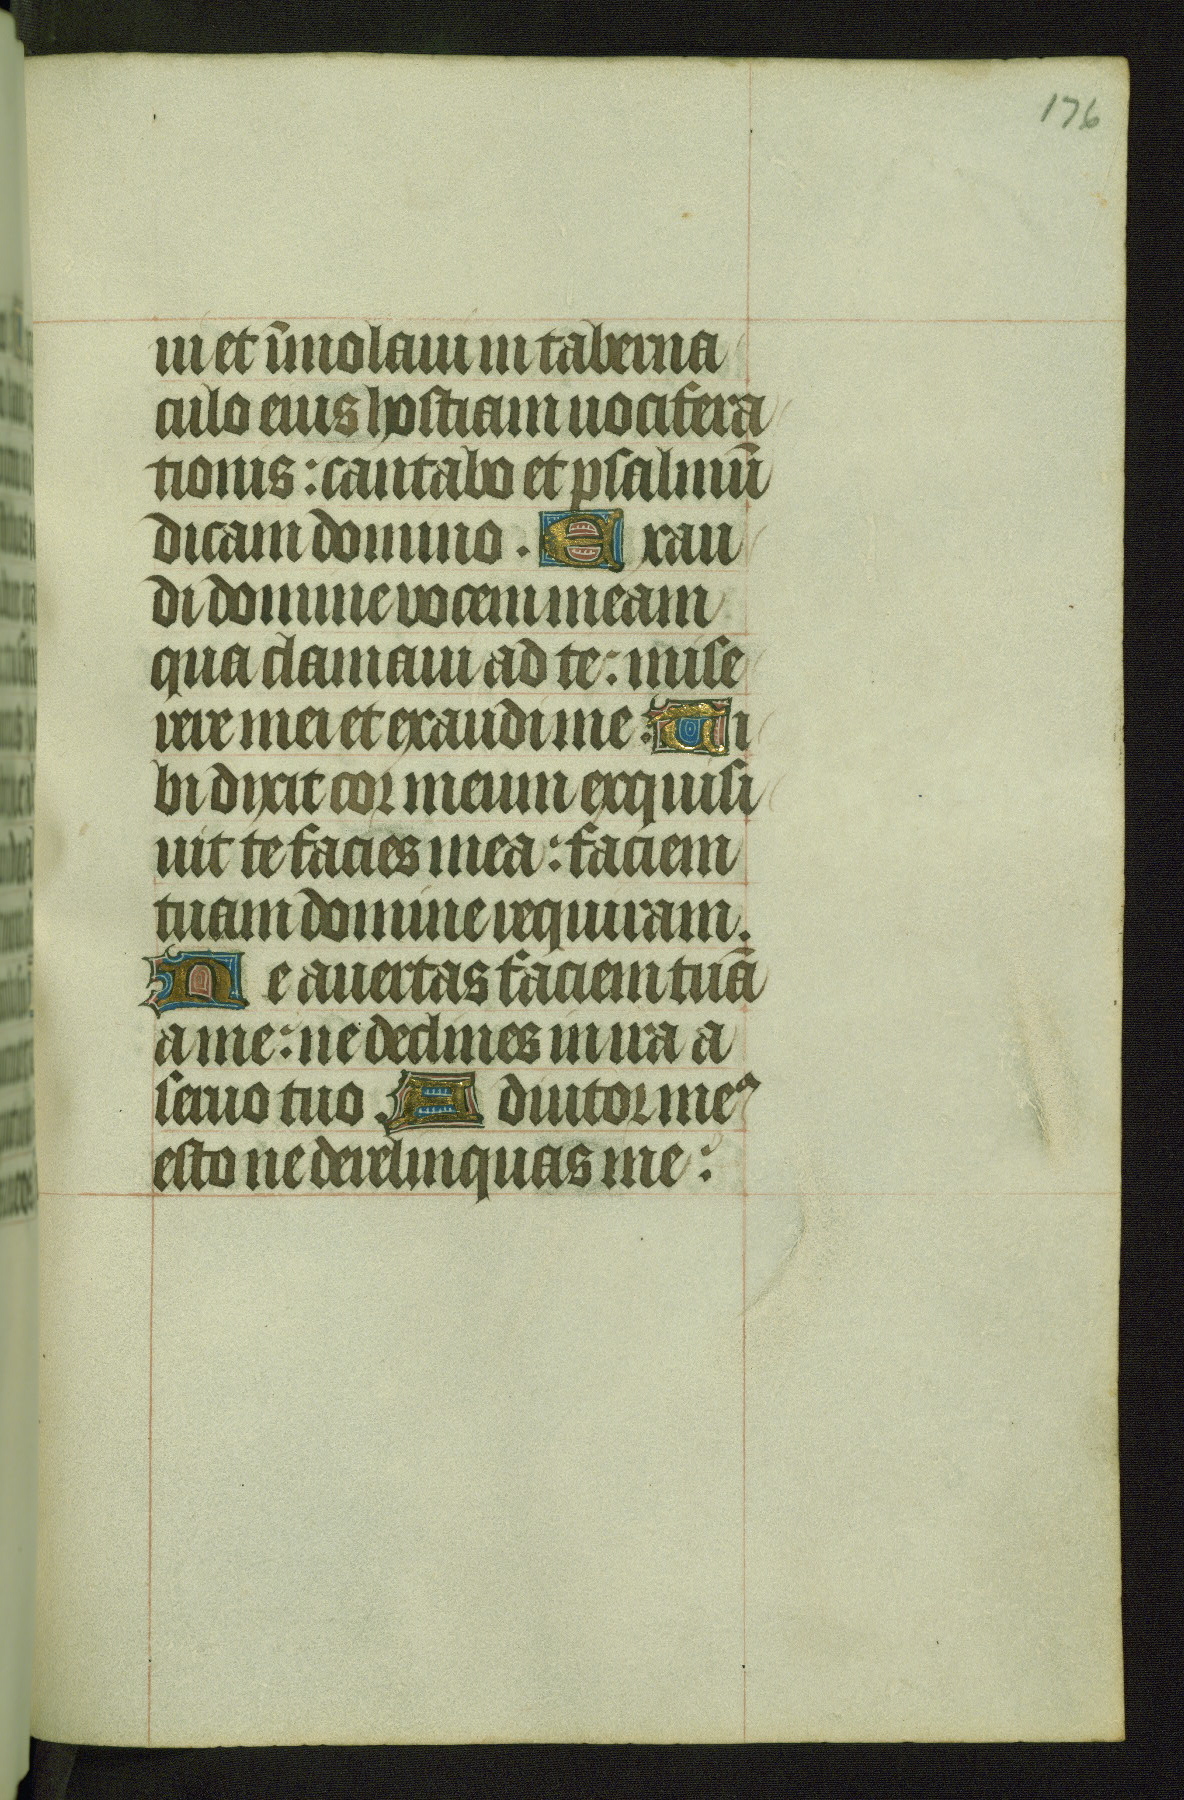 176
ui et im̄olaui in taberna
culo eius hostiam uocifera
tionis : cantabo et psalmū
dicam domino . Exau
di domine vocem meam
qua clamaui ad te : mise
rere mei et exaudi me : Ti
bi dixit cor meum exquisi
uit te facies mea : faciem
tuam domine requiram .
Ne auertas faciem tuā
a me : ne declines in ira a
seruo tuo . Adiutor meꝰ
esto ne derelinquas me :